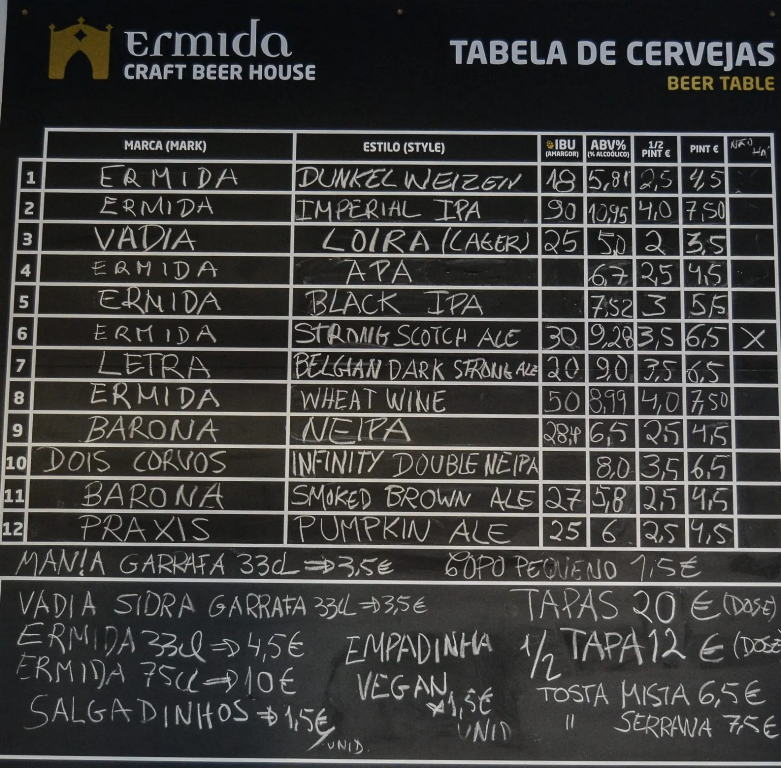 ERMIDA
CRAFT BEER HOUSE
TABELA DE CERVEJAS
BEER TABLE
MARCA (MARK) ESTILO (STYLE) IBU (AMARGOR) ABV% (% ALCOÓLICO) 1/2 PINT € PINT € NÃO HÁ
1 ERMIDA DUNKELWEIZEN 18 5,81 2,5 4,5
2 ERMIDA IMPERIAL IPA 90 10,95 4,0 7,50
3 VADIA LOIRA (LAGER) 25 5,0 2 3,5
4 ERMIDA APA 6,7 2,5 4,5
5 ERMIDA BLACK IPA 7,52 3 5,5
6 ERMIDA STRONG SCOTCH ALE 30 9,28 3,5 6,5 X
7 LETRA BELGIAN DARK STRONG ALE 20 9,0 3,5 6,5
8 ERMIDA WHEAT WINE 50 8,99 4,0 7,50
9 BARONA NEIPA 6,5 2,5 4,5
10 DOIS CORVOS INFINITY DOUBLE NEIPA 8,0 3,5 6,5
11 BARONA SMOKED BROWN ALE 27 5,8 2,5 4,5
12 PRAXIS PUMPKIN ALE 25 6 2,5 4,5
MAN!A GARRAFA 33cl ⇒ 3,5€ COPO PEQUENO 1,5€
VADIA SIDRA GARRAFA 33cl ⇒ 3,5€
ERMIDA 33cl ⇒ 4,5€
ERMIDA 75cl ⇒ 10€
SALGADINHOS ⇒ 1,5€/UNID.
EMPADINHA
VEGAN
⇒ 1,5€
UNID
TAPAS 20 € (DOSE)
1/2 TAPA 12 € (DOSE
TOSTA MISTA 6,5€
" SERRANA 7,5€